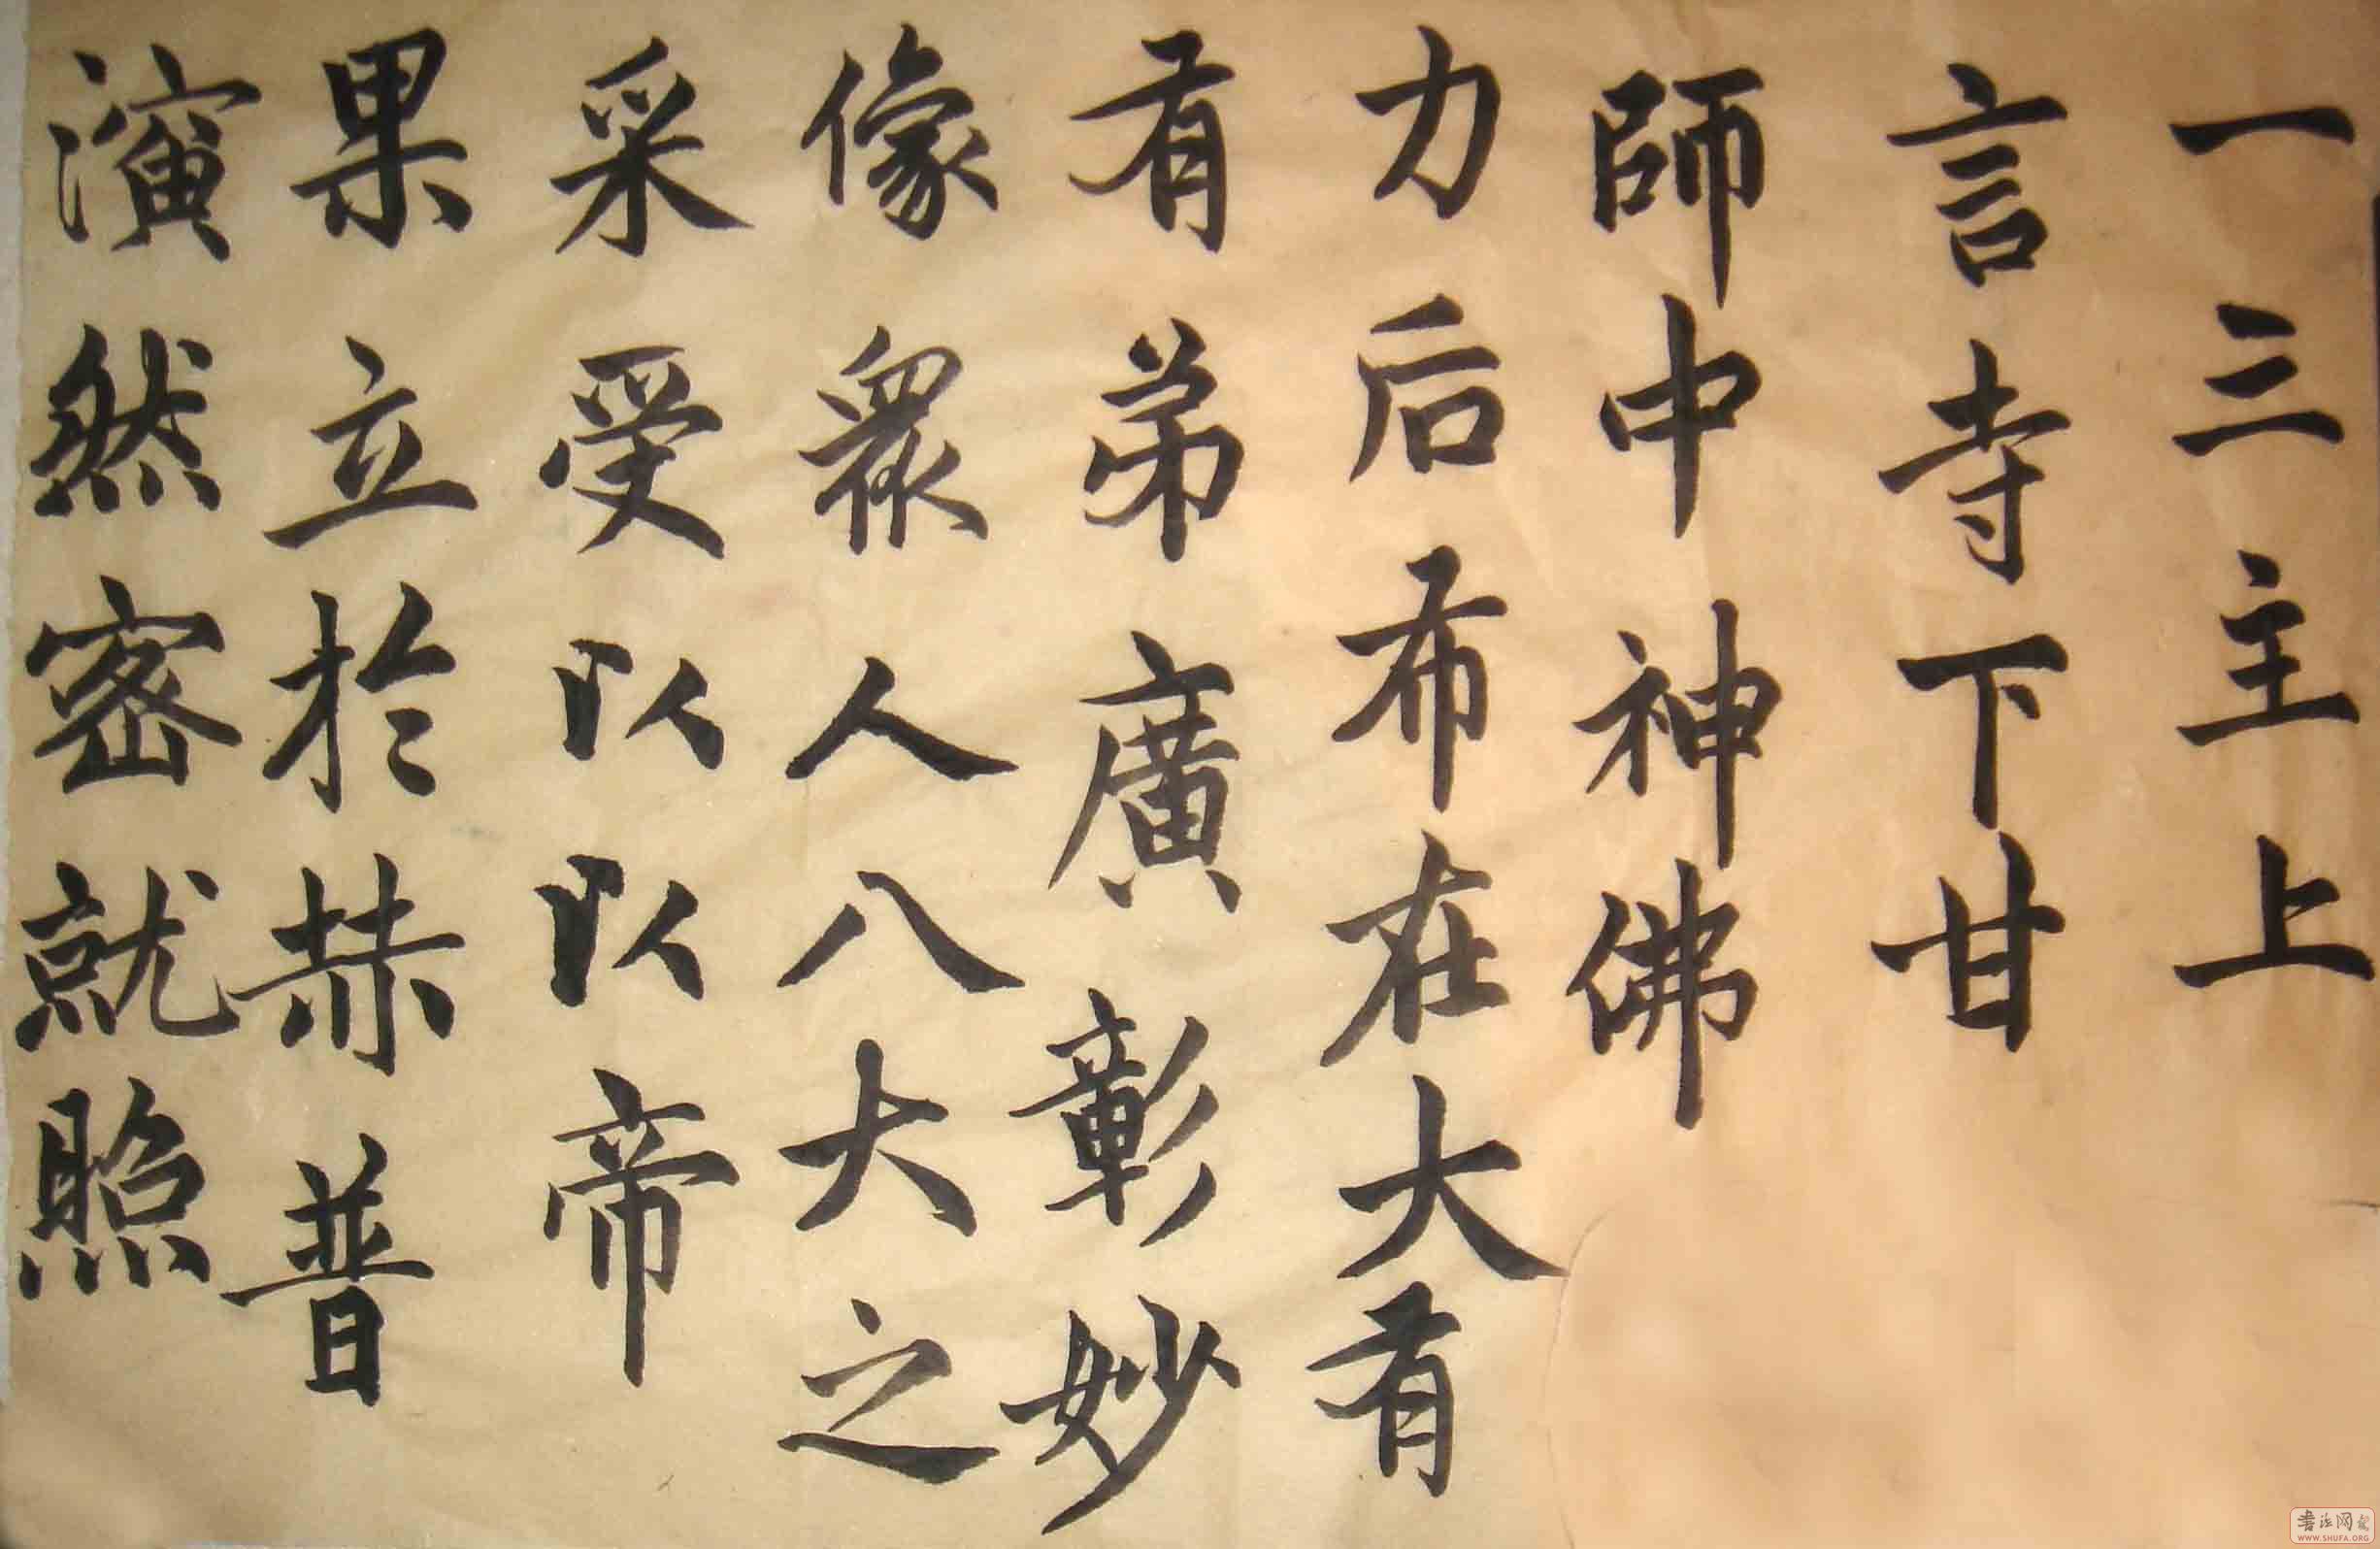 一三主上
言寺下甘
師中神佛
力后布在大有
有弟廣彰妙
像眾人八大之
采受以以帝
果立於赫普
演然密就照
书法网
WWW.SHUFA.ORG